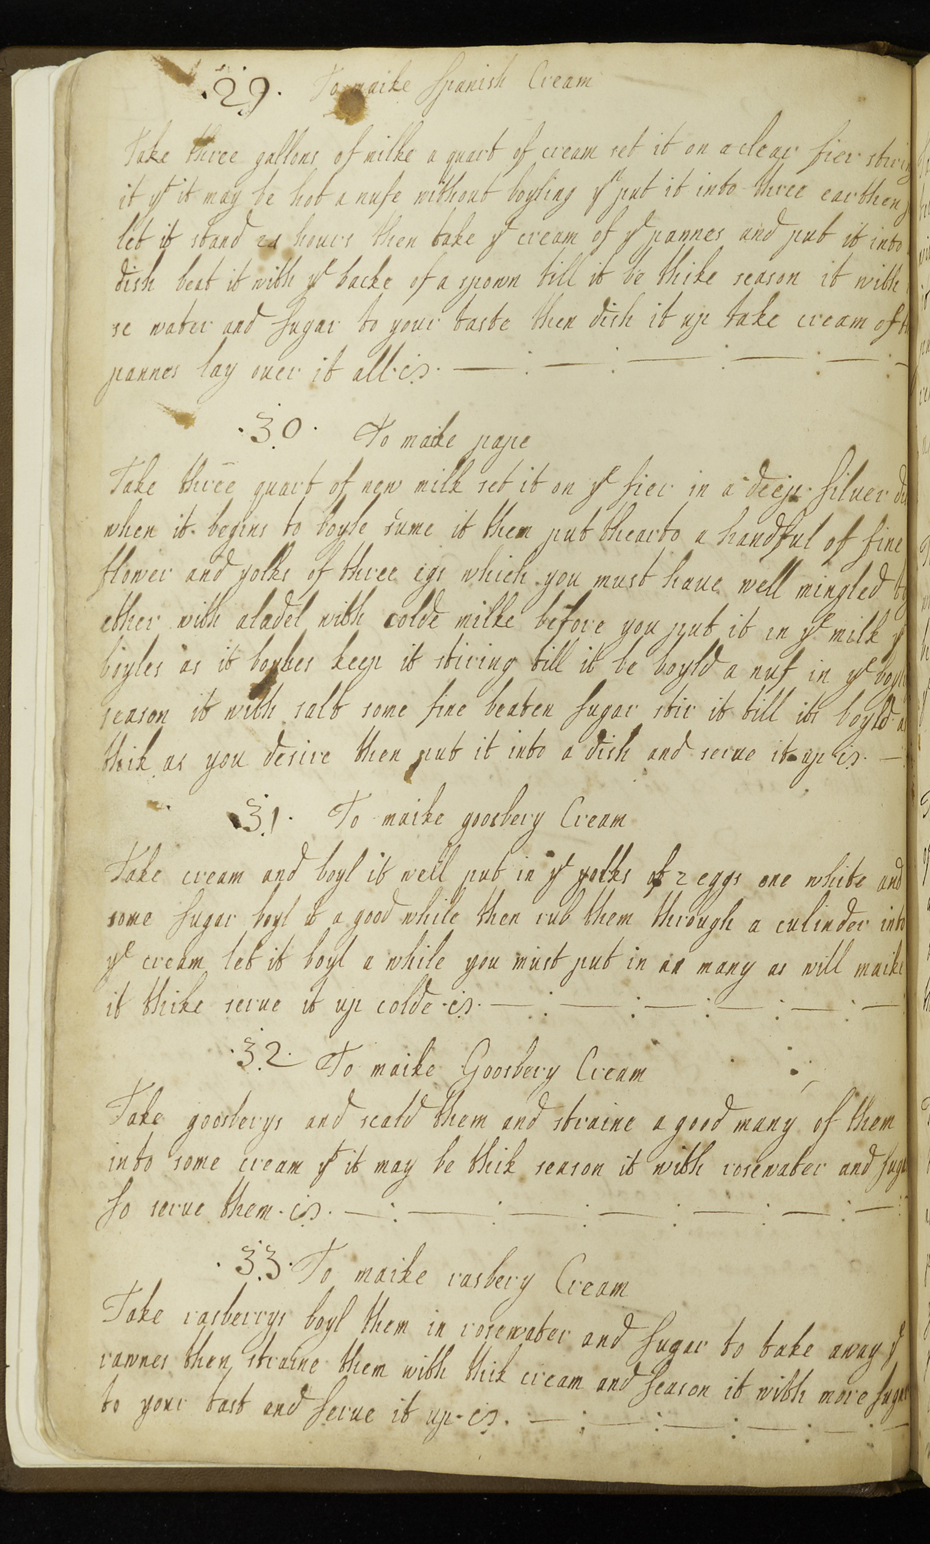 .29. To maike Spanish Cream
Take three gallons of milke a quart of cream set it on a clear fier stiring
it yt it may be hot a nufe without boyling yn put it into three earthen
let it stand hours then take ye cream of ye pannes and put it into
dish beat it with ye backe of a spown till it be thike season it with
se water and sugar to your taste then dish it up take cream of
pannes lay over it all
.30. To make pape
Take three quart of new milk set it on ye fier in a deep silver
when it begins to boyle sume it them put thearto a handful of fine
flower and yolks of three egs which you must have well mingled
ether with aladel with colde milke before you put it in ye milk
boyles as it boyles keep it stiring till it be boyld a nuf in ye
season it with salt some fine beaten sugar stir it till its boyld
thik as you desire then put it into a dish and serve it up
31. To maike goosbery Cream
Take cream and boyl it well put in ye yolks of 2 eggs one white and
some sugar boyl it a good while then rub them through a culinder into
ye cream let it boyl a while you must put in as many as will maike
it thike serve it up colde
.32. To maike Goosbery Cream
Take goosberys and scald them and straine a good many of them
into some cream yt it may be thik season it with rosewater and
so serve them
.33. To maike rasbery Cream
Take rasberrys boyl them in rosewater and sugar to take away ye
rawnes then straine them with thik cream and season it with more
to your tast and serve it up